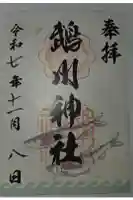 奉拝
鵡川神社
令和七年十一月八日